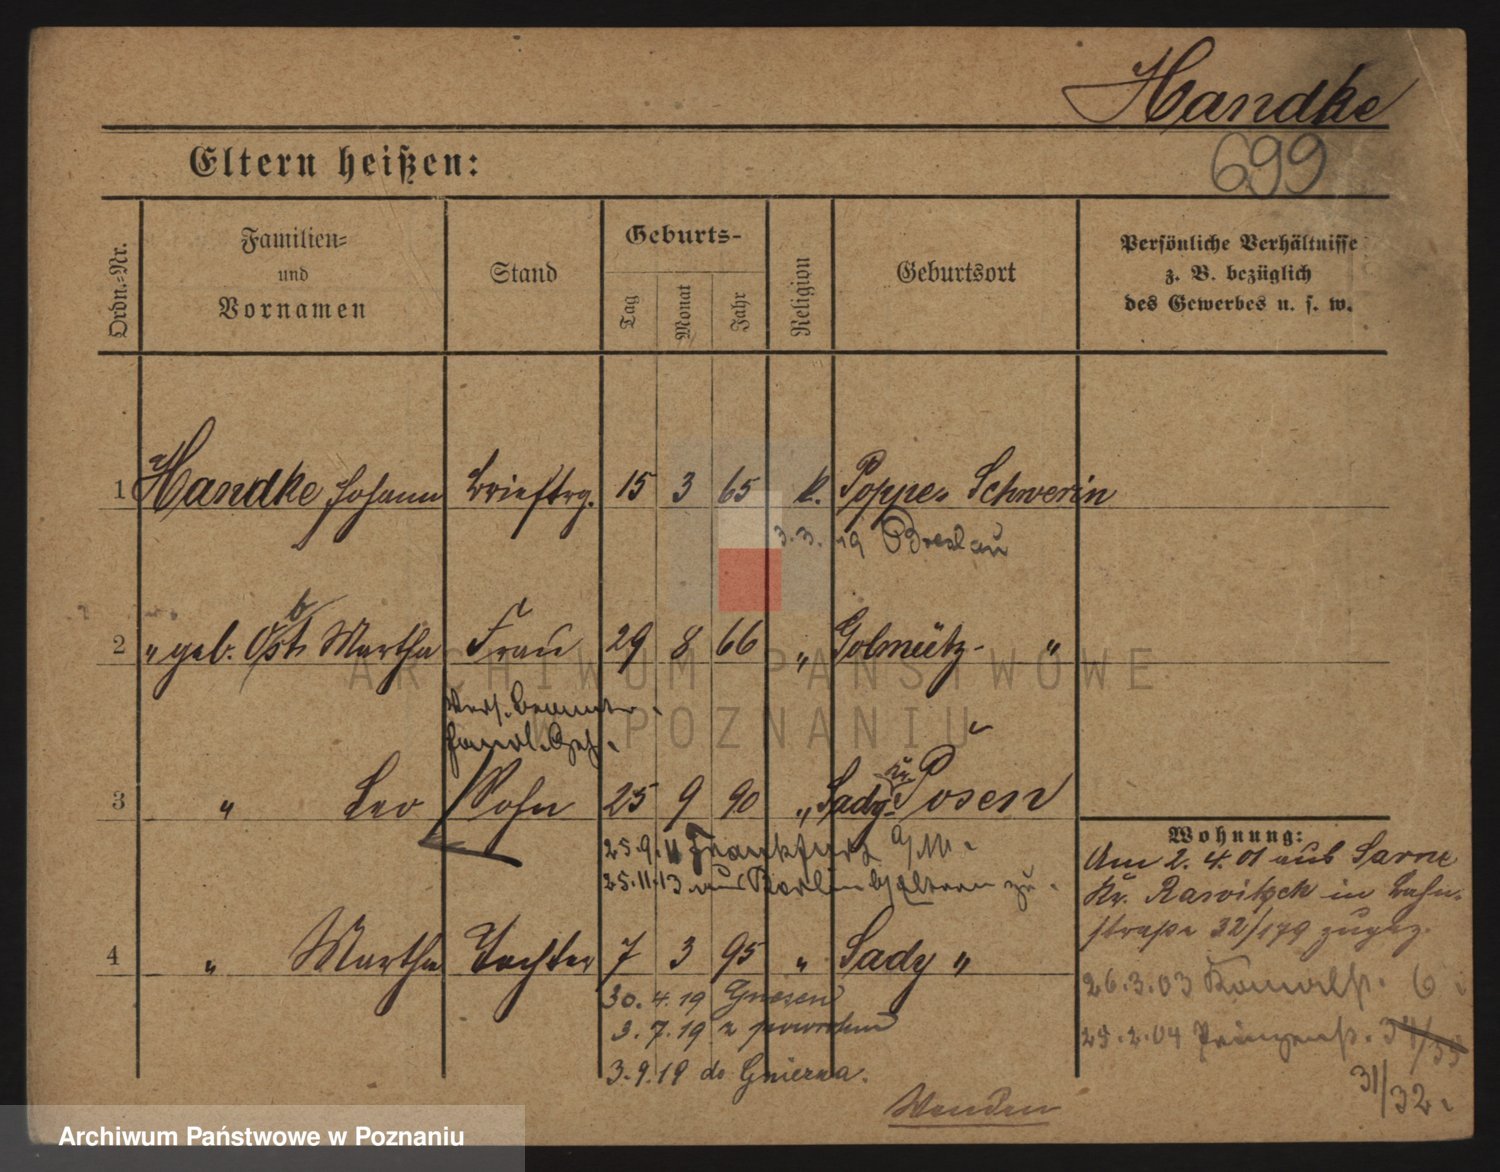 Handke
699
Eltern heißen:
Ordn.-Nr.
Familien-
und
Vornamen
Stand
Geburts-
Tag
Monat
Jahr
Religion
Geburtsort
Persönliche Verhältnisse
z. B. bezüglich
des Gewerbes u. s. w.
1 Handke Johann Brieftrg. 15 3 65 k. Poppe " Schwerin
3.3.19 Breslau
2 " geb. Martha Frau 29 8 66 " Golmütz - "
Vers. Beamter
3 " Leo Sohn 25 9 90 " Sady Kr. Posen
25.9.11 Frankfurt a/M.
25.11.13 aus Berlin b/Eltern zu.
4 " Martha Tochter 7 3 95 " Sady "
30.4.19 Gnesen
3.7.19 z powrotem
3.9.19 do Gniezna.
Wenden
Wohnung:
Am 2.4.01 aus Sarne
Kr. Rawitsch in Bahn-
straße 32/179 zugez.
26.3.03 Kanalstr. 6.
25.2.04 Prinzenstr.
31/32.
ARCHIWUM PAŃSTWOWE
W POZNANIU
Archiwum Państwowe w Poznaniu